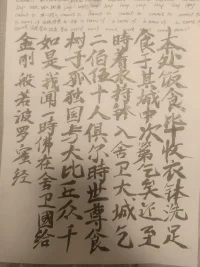 金剛般若波罗蜜经
如是我闻一時佛在舍卫國给
树于孤独国与大比丘众千
二伯伍十人俱尔時世尊食
時着衣持钵入舍卫大城乞
食于其城中次第乞矣近至
本处饭食毕收衣鉢洗足